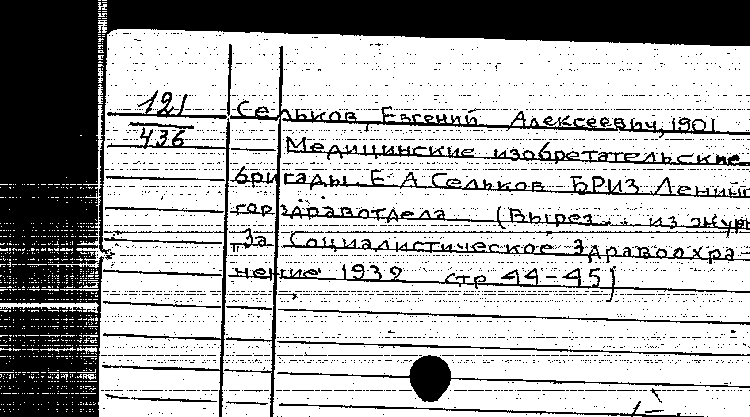 121
436
Сельков, Евгений Алексеевич, 1901
Медицинские изобретательские
бригады Е А Сельков БРИЗ Ленинг
горздравотдела (Вырез.. из журн
"За Социалистическое Здравоохра-
нение 1932 стр 44-45)